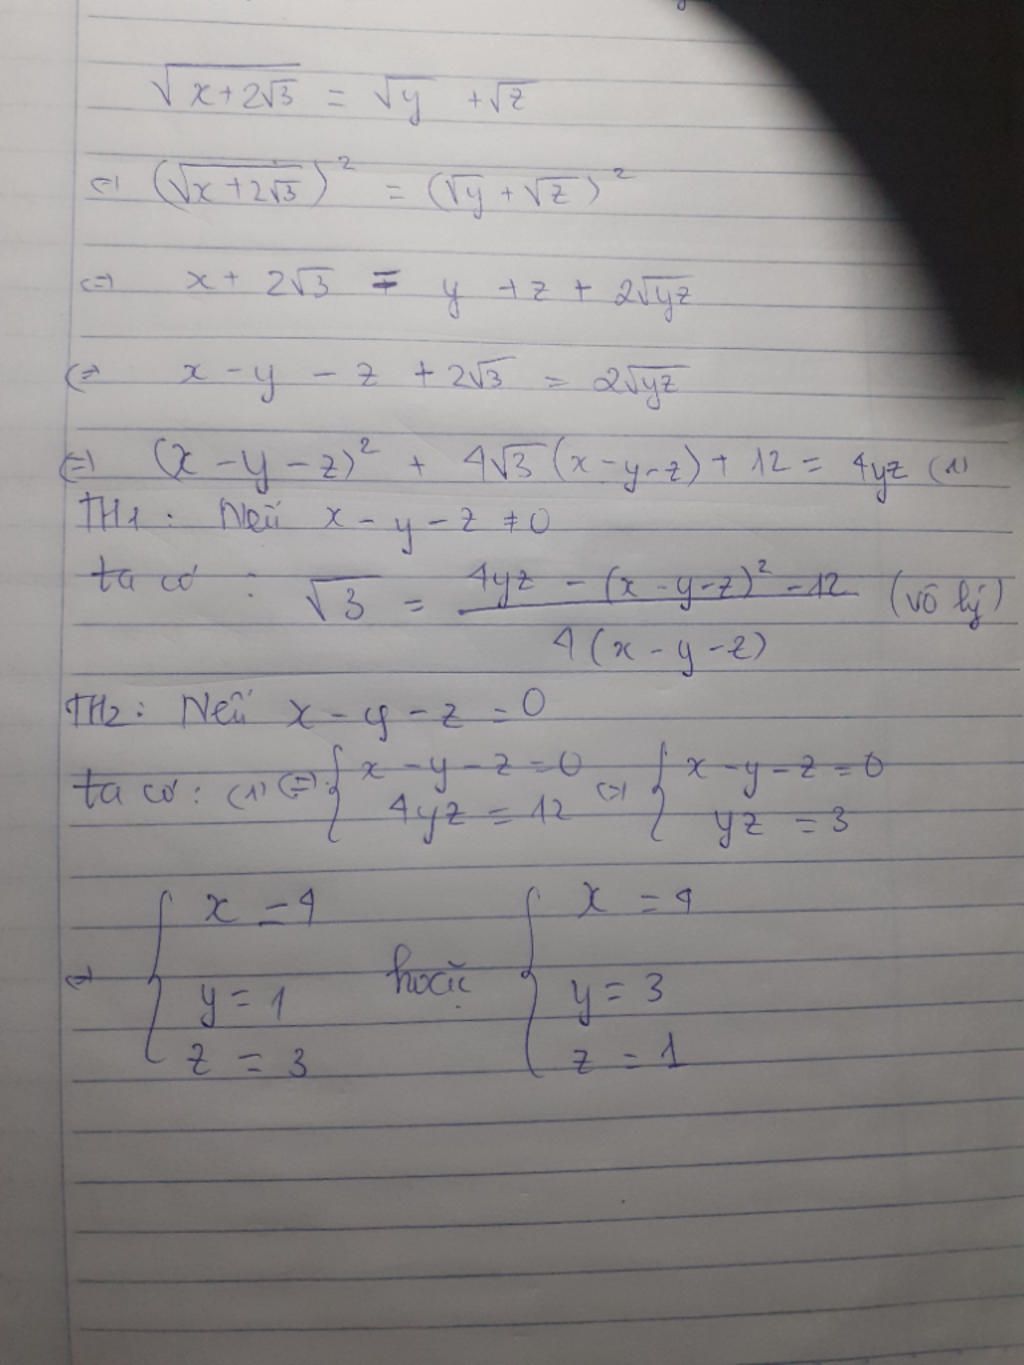 √(x+2√3) = √y + √z
⇔ (√(x+2√3))² = (√y + √z)²
⇔ x + 2√3 = y + z + 2√yz
⇔ x - y - z + 2√3 = 2√yz
⇔ (x - y - z)² + 4√3 (x - y - z) + 12 = 4yz (1)
TH1: Nếu x - y - z ≠ 0
ta có: √3 = (4yz - (x - y - z)² - 12) / (4(x - y - z)) (vô lý)
TH2: Nếu x - y - z = 0
ta có: (1) ⇔ { x - y - z = 0 ; 4yz = 12 ⇔ { x - y - z = 0 ; yz = 3
⇔ { x = 4 ; y = 1 ; z = 3 hoặc { x = 4 ; y = 3 ; z = 1